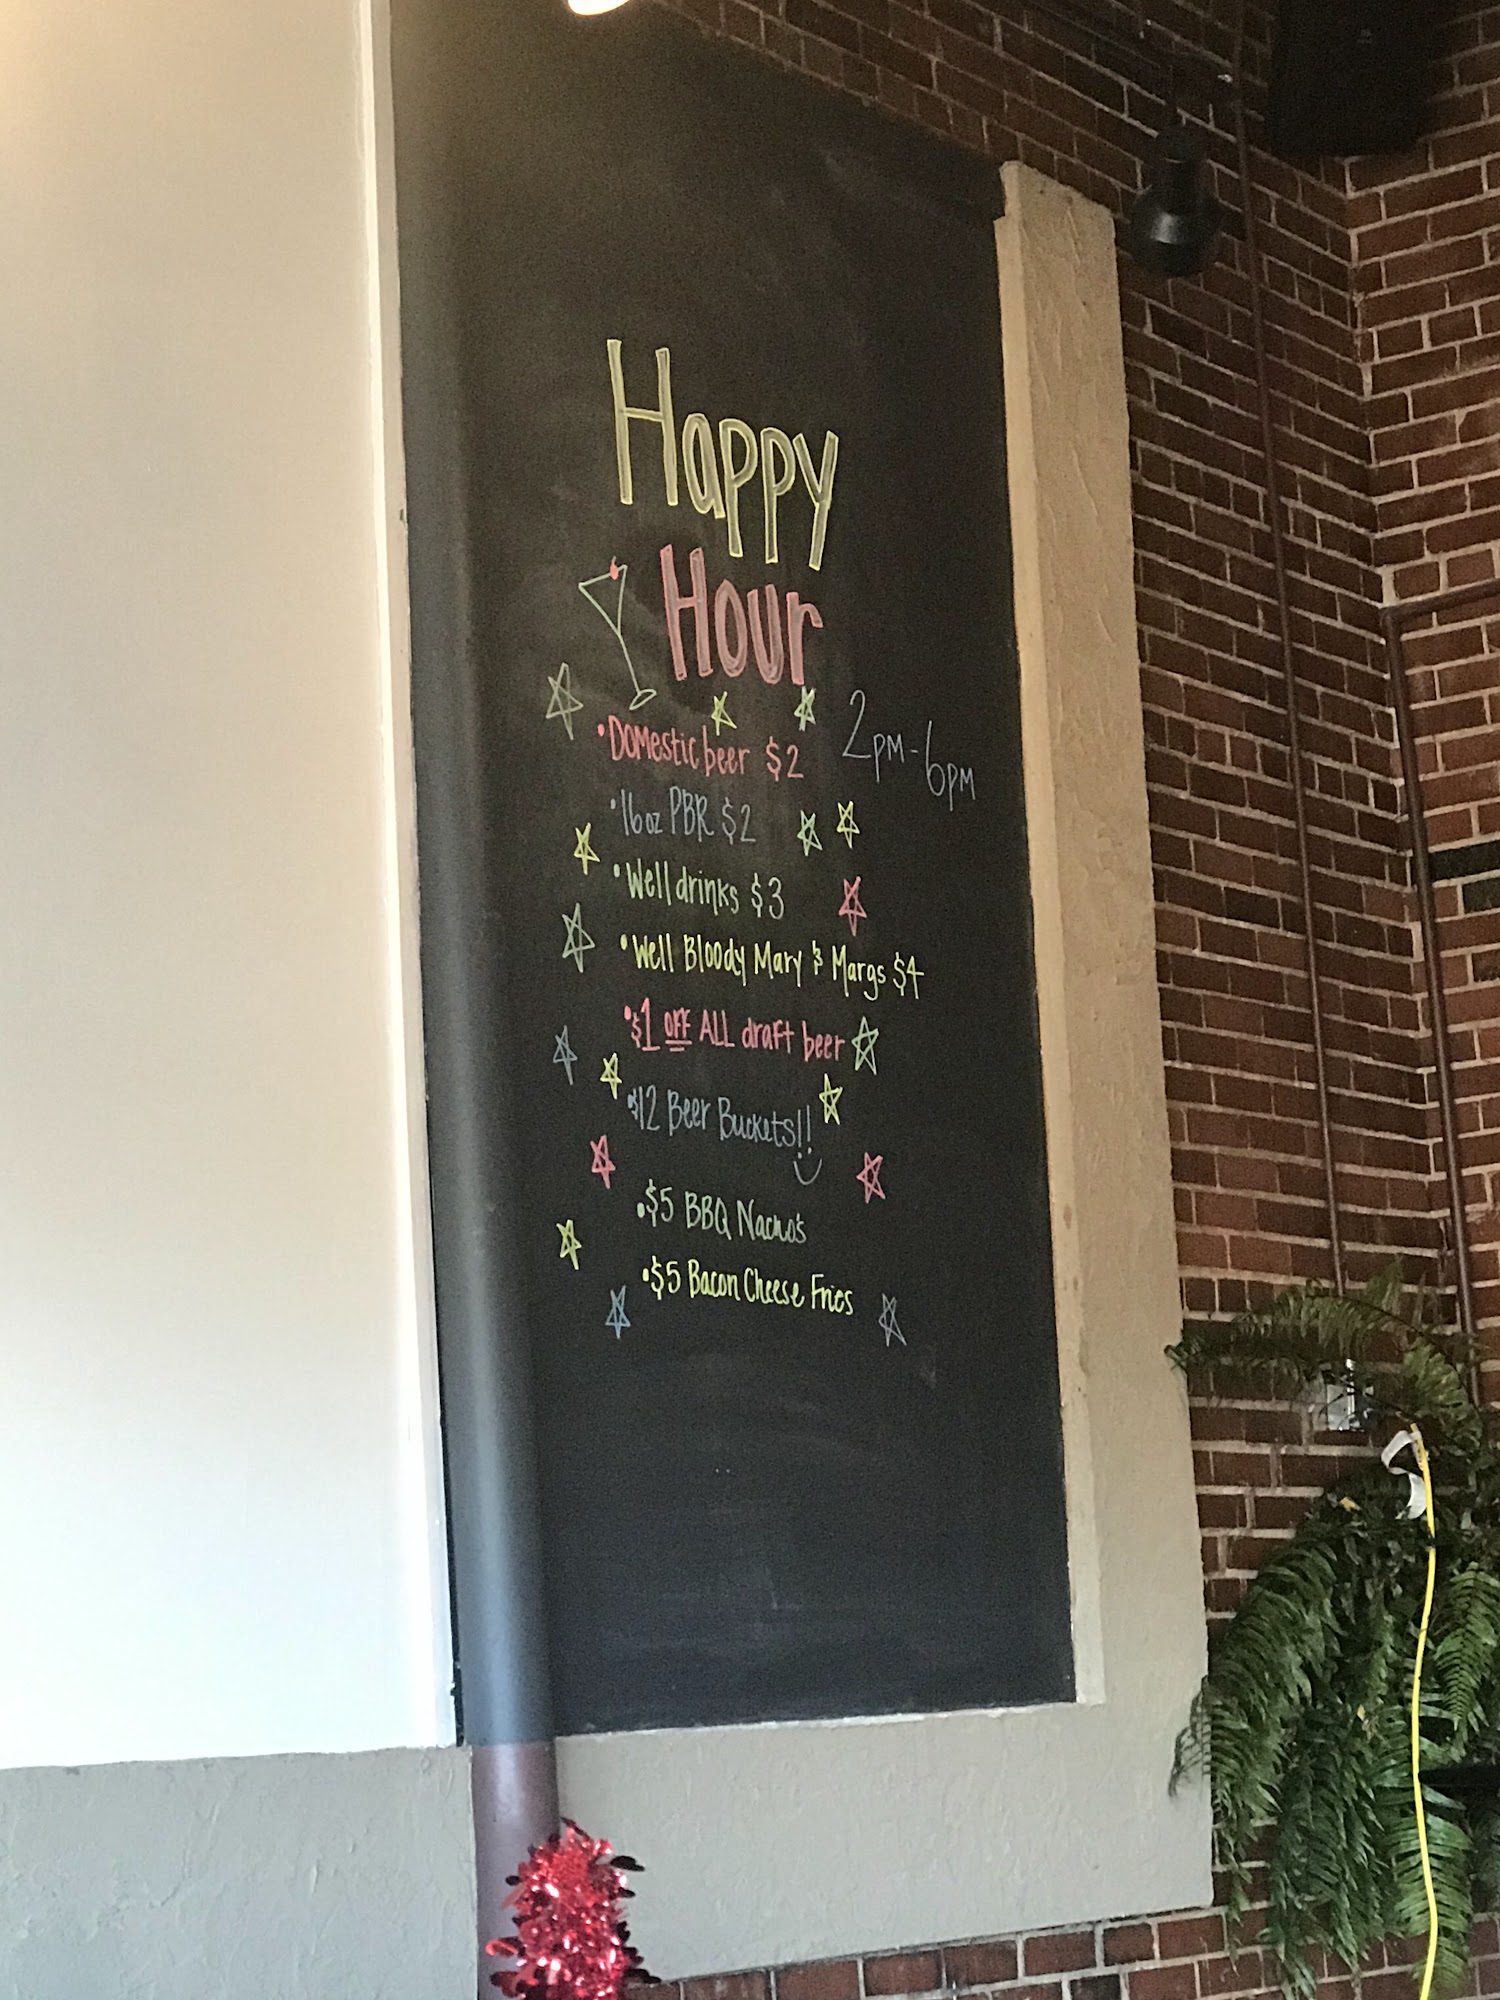 Happy
Hour
2pm-6pm
• Domestic beer $2
• 16oz PBR $2
• Well drinks $3
• Well Bloody Mary & Margs $4
• $1 OFF ALL draft beer
• $12 Beer Buckets!!
• $5 BBQ Nacho's
• $5 Bacon Cheese Fries